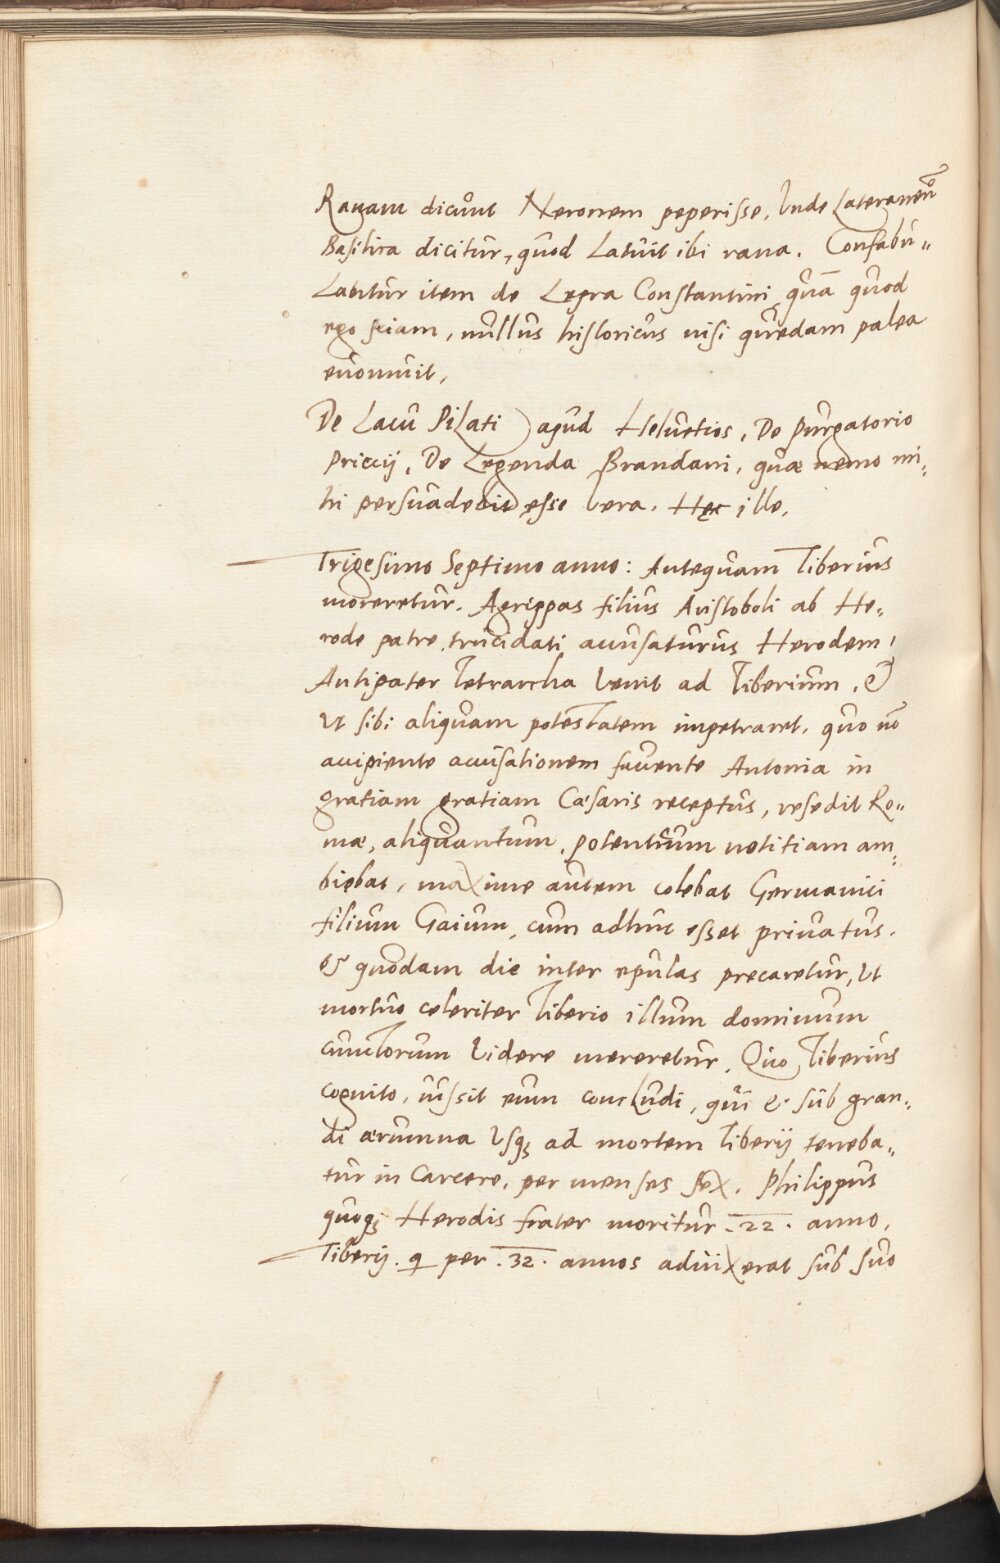 Ranam dicunt Neronem peperisse, Inde Lateranen̄
Basilica dicitur, quod Latuit ibi rana. Confabu„
Lantur item de Lepra Constantini, quā quod
ego sciam, nullus historicus nisi quædam palea
euomuit,
De Lacu Pilati apud Heluetios, De Purgatorio
Priccij, De Legenda Brandani, quæ nemo mi„
hi persuadebit esse vera. Hęc ille,
Trigesimo Septimo anno: Antequam Tiberius
moreretur. Agrippas filius Aristoboli ab He„
rode patre trucidati accusaturus Herodem,
Antipater Tetrarcha venit ad Tiberium, &
Ut sibi aliquam potestatem impetraret, quo nō
accipiente accusationem fauente Antonia in
gratiam gratiam Cæsaris receptus, resedit Ro„
mæ, aliquantum, potentium notitiam am„
biebat, maxime autem colebat Germanici
filium Gaium, cum adhuc esset priuatus.
et quodam die inter epulas precaretur, Ut
mortuo celeriter Tiberio illum dominum
cunctorum Videre mereretur, Quo Tiberius
cognito, iussit eum concludi, qui & sub gran„
di ærumna Usq; ad mortem Tiberij teneba„
tur in Carcere, per menses sex. Philippus
quoq; Herodis frater moritur .22. anno,
Tiberij. q per .32. annos aduixerat sub suo